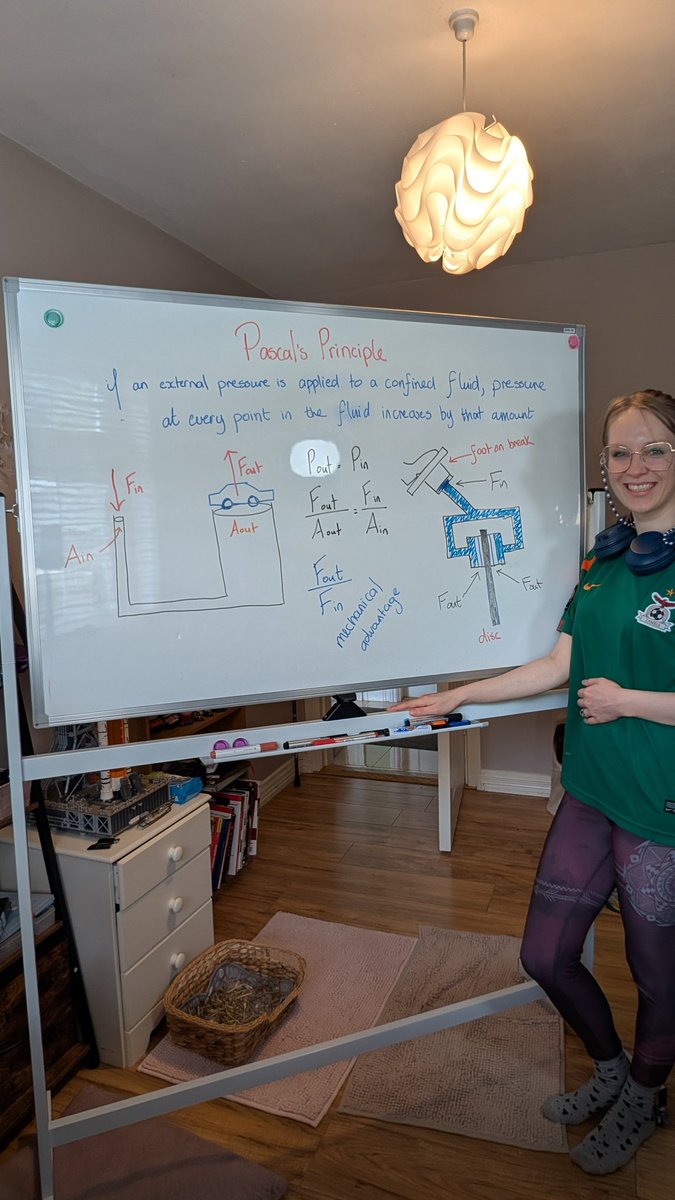 Pascal's Principle
if an external pressure is applied to a confined fluid, pressure
at every point in the fluid increases by that amount
Fin
Ain
Fout
Aout
Pout = Pin
Fout/Aout = Fin/Ain
Fout/Fin
mechanical
advantage
foot on break
Fin
Fout
Fout
disc